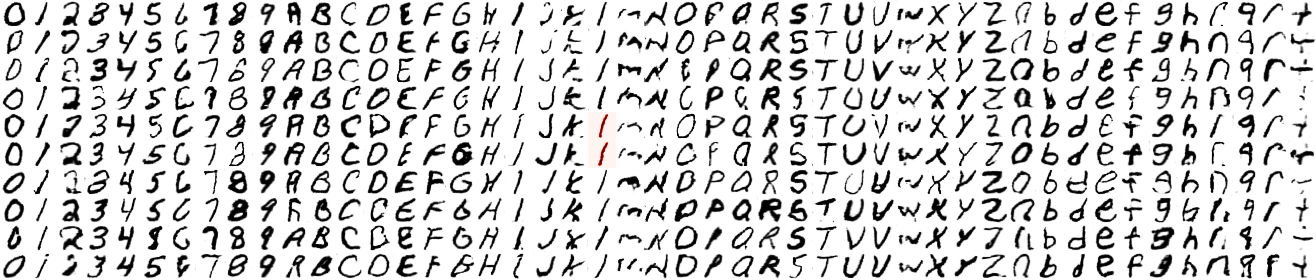 0 1 2 3 4 5 6 7 8 9 A B C D E F G H I J K l m N O P Q R S T U V w X Y Z a b d e f g h n q r t
0 1 2 3 4 5 6 7 8 9 A B C D E F G H I J K l m N O P Q R S T U V w X Y Z a b d e f g h n q r t
0 1 2 3 4 5 6 7 8 9 A B C D E F G H I J K l m N O P Q R S T U V w X Y Z a b d e f g h n q r t
0 1 2 3 4 5 6 7 8 9 A B C D E F G H I J K l m N O P Q R S T U V w X Y Z a b d e f g h n q r t
0 1 2 3 4 5 6 7 8 9 A B C D E F G H I J K l m N O P Q R S T U V w X Y Z a b d e f g h n q r t
0 1 2 3 4 5 6 7 8 9 A B C D E F G H I J K l m N O P Q R S T U V w X Y Z a b d e f g h n q r t
0 1 2 3 4 5 6 7 8 9 A B C D E F G H I J K l m N O P Q R S T U V w X Y Z a b d e f g h n q r t
0 1 2 3 4 5 6 7 8 9 A B C D E F G H I J K l m N O P Q R S T U V w X Y Z a b d e f g h n q r t
0 1 2 3 4 5 6 7 8 9 A B C D E F G H I J K l m N O P Q R S T U V w X Y Z a b d e f g h n q r t
0 1 2 3 4 5 6 7 8 9 A B C D E F G H I J K l m N O P Q R S T U V w X Y Z a b d e f g h n q r t